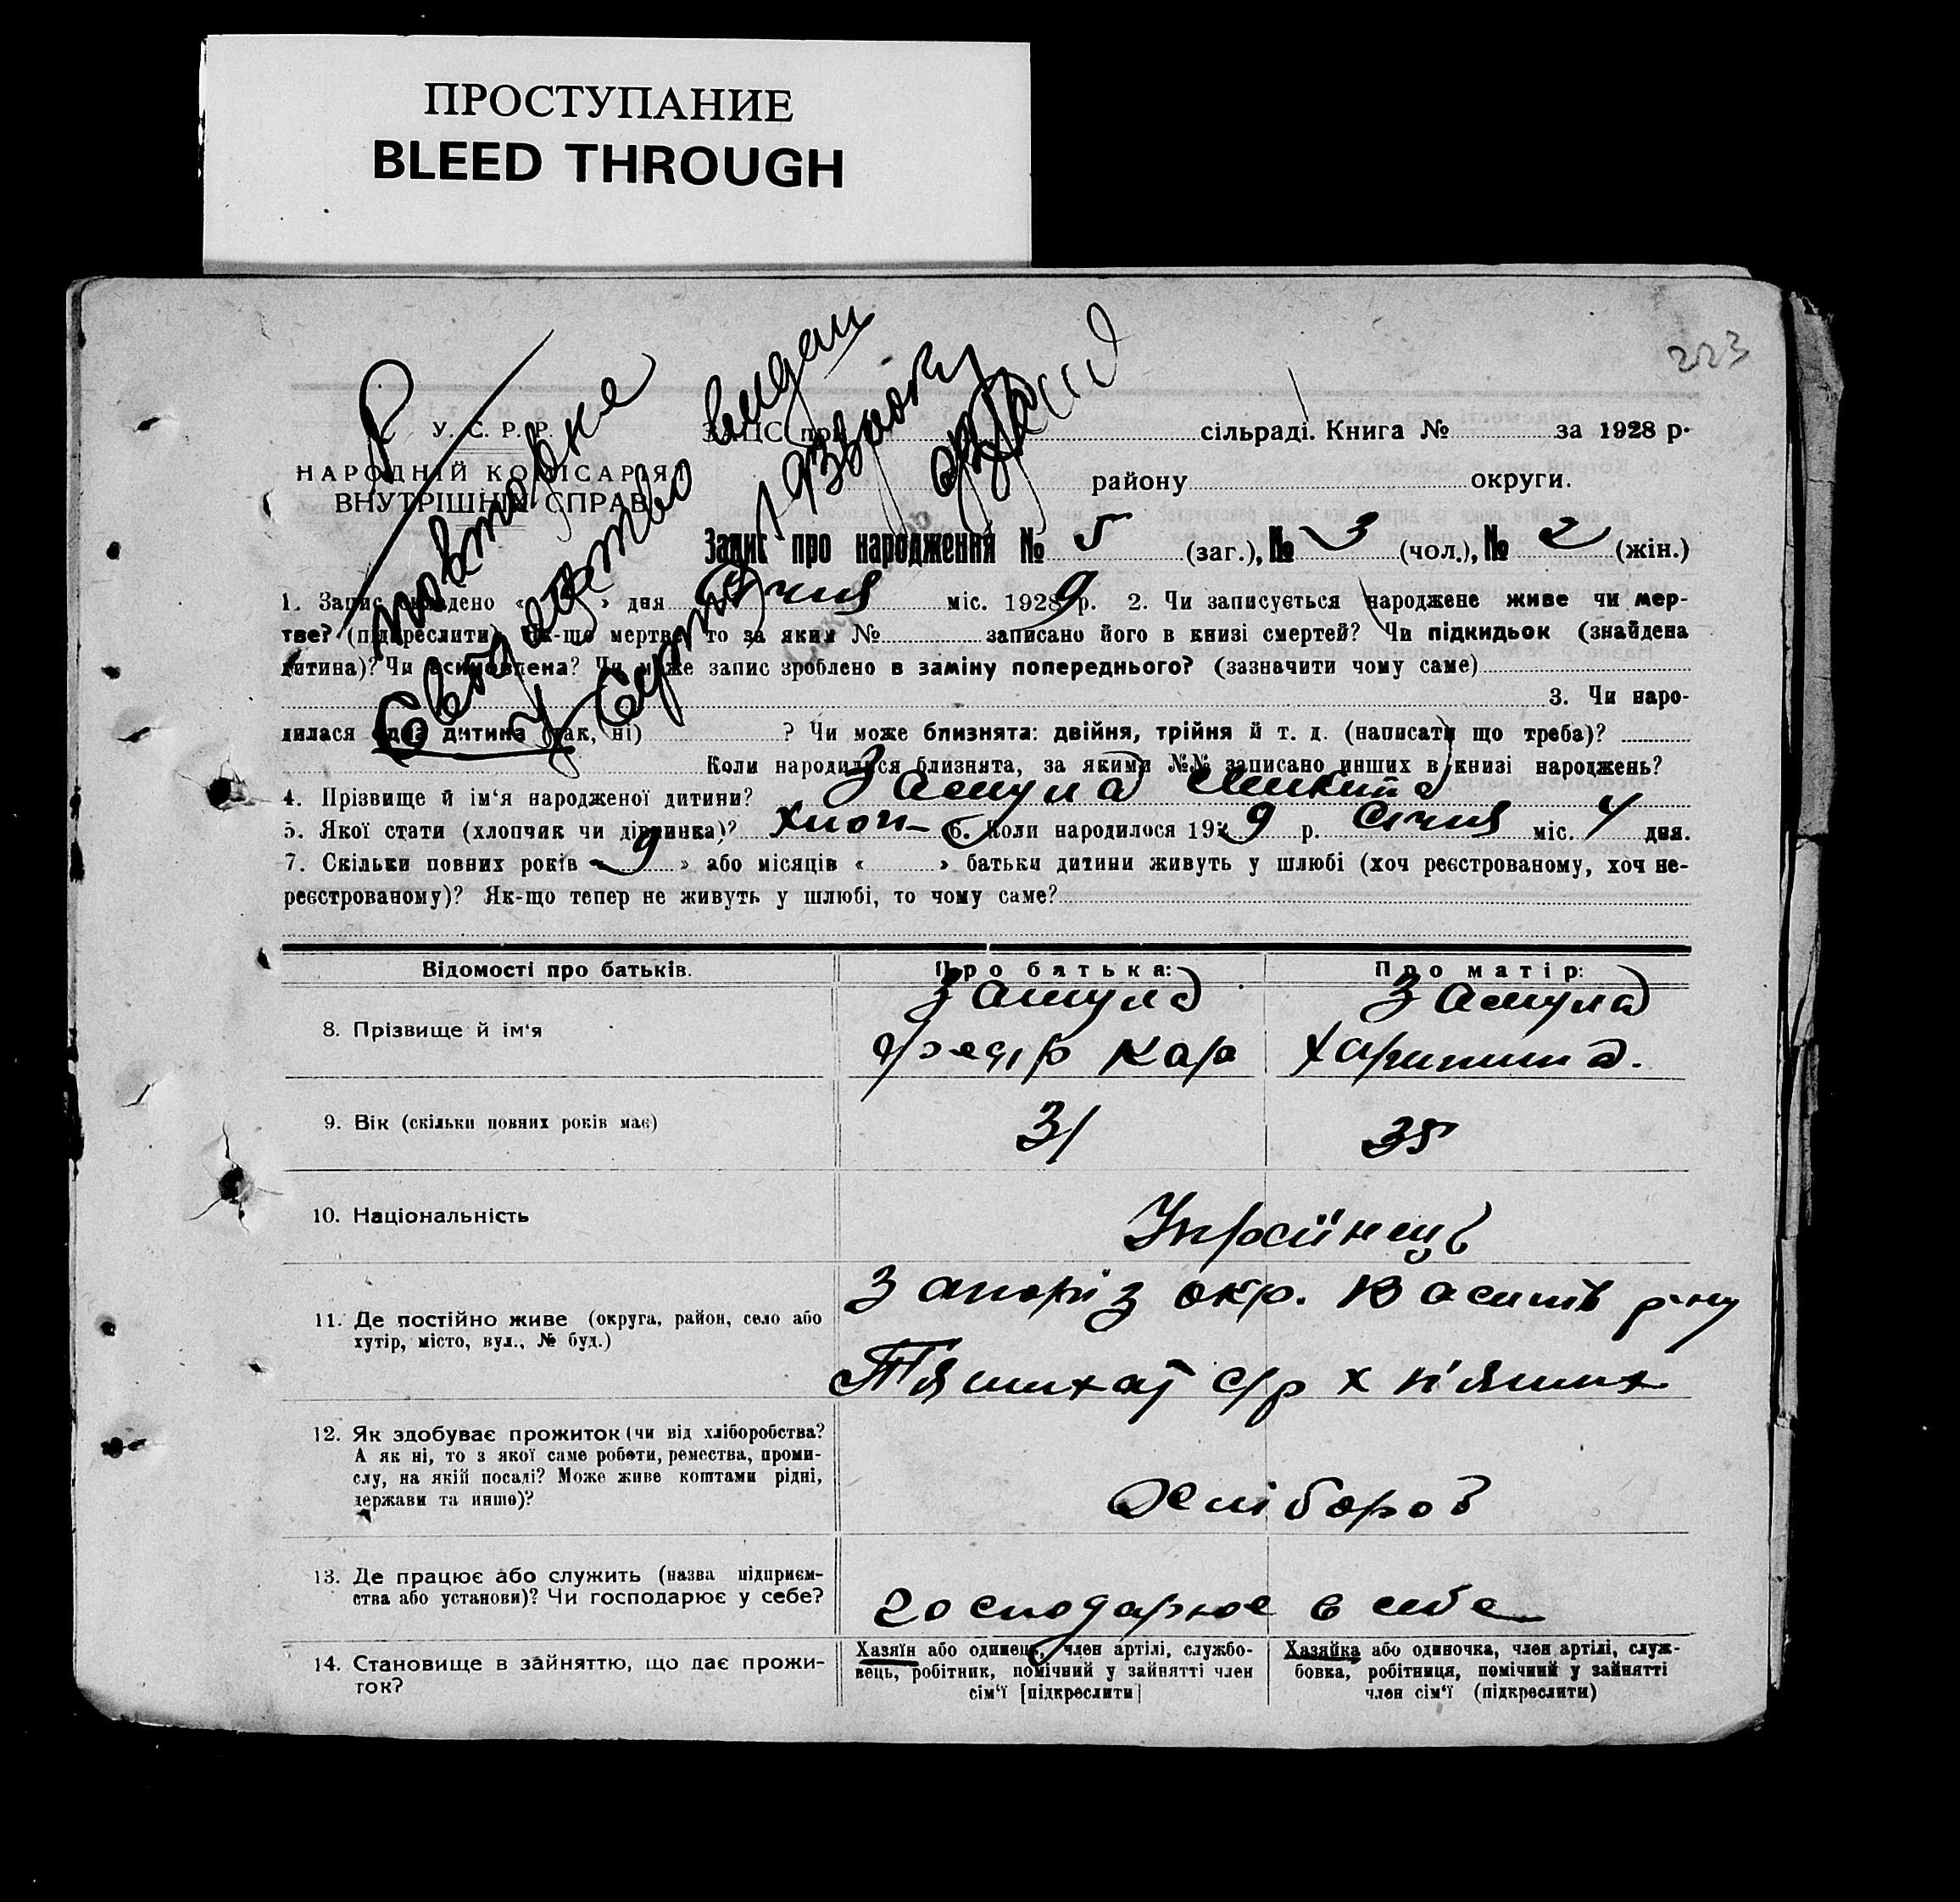 ПРОСТУПАНИЕ
BLEED THROUGH
223
У. С. Р. Р.
НАРОДНІЙ КОМІСАРІЯТ
ВНУТРІШНІХ СПРАВ
ЗАПИС при сільраді. Книга № за 1928 р.
району округи.
Повторне
Свидетство видан
Запис про народження № 5 (заг.), № 3 (чол.), № 2 (жін.)
1. Запис складено « » дня Січня міс. 1929 р. 2. Чи записується народжене живе чи мер-
тве? (підкреслити) Як-що мертве, то за яким № записано його в книзі смертей? Чи підкидьок (знайдена
дитина)? Чи всиновлена? Чи може запис зроблено в заміну попереднього? (зазначити чому саме)
3. Чи наро-
дилася одна дитина (так, ні) ? Чи може близнята: двійня, трійня й т. д. (написати що треба)?
Коли народилися близнята, за якими №№ записано инших в книзі народжень?
4. Прізвище й ім‘я народженої дитини? Зашула Микита
5. Якої стати (хлопчик чи дівчинка)? Хлоп- 6. Коли народилося 1929 р. Січня міс. 4 дня.
7. Скільки повних років « 9 » або місяців « » батьки дитини живуть у шлюбі (хоч реєстрованому, хоч не-
реєстрованому)? Як-що тепер не живуть у шлюбі, то чому саме?
Відомості про батьків. Про батька: Про матір:
8. Прізвище й ім‘я
Зашула Зашула
Федір Кар Харитина.
9. Вік (скільки повних років має) 31 35
10. Національність Українець
11. Де постійно живе (округа, район, село або
хутір, місто, вул., № буд.)
Запоріз окр. Васиків р-ну
П'ятихат с/р х п'ятих
12. Як здобуває прожиток (чи від хліборобства?
А як ні, то з якої саме роботи, ремества, проми-
слу, на якій посаді? Може живе коштами рідні,
держави та инше)?
Хлібороб
13. Де працює або служить (назва підприєм-
ства або установи)? Чи господарює у себе?
господарює в себе
14. Становище в зайняттю, що дає прожи-
ток?
Хазяїн або одинець, член артілі, службо-
вець, робітник, помічний у зайнятті член
сім‘ї [підкреслити]
Хазяйка або одиночка, член артілі, служ-
бовка, робітниця, помічний у зайнятті
член сім‘ї (підкреслити)